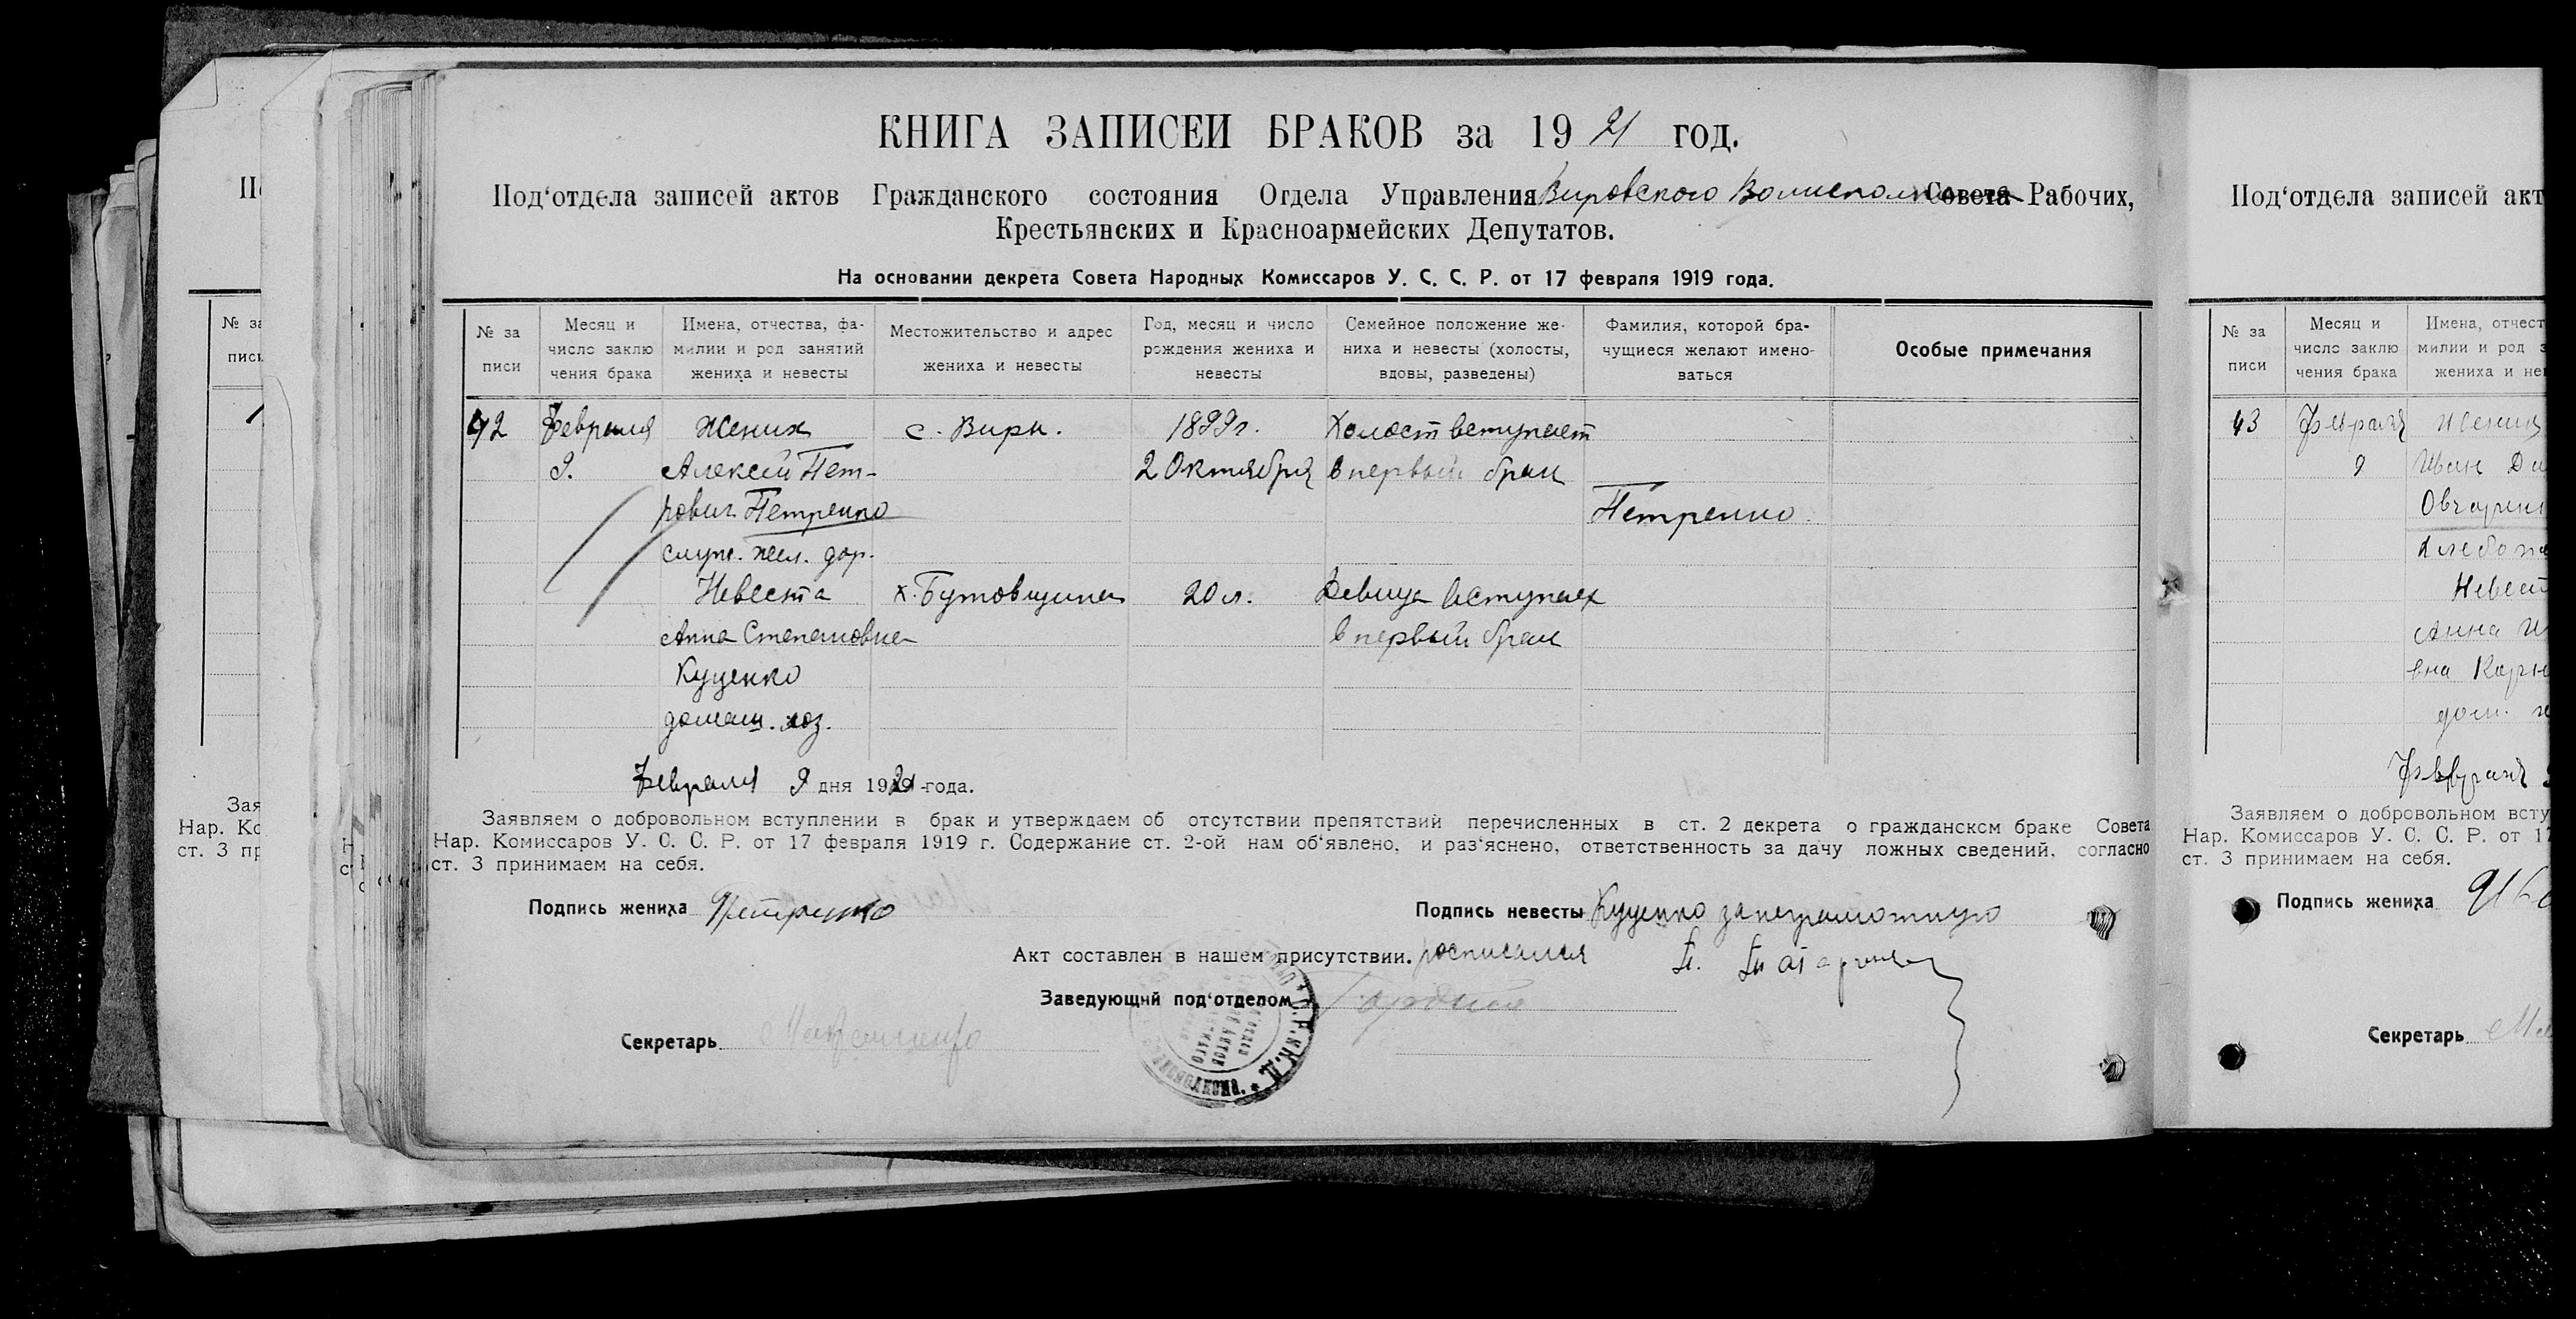 КНИГА ЗАПИСЕЙ БРАКОВ за 1921 год.
Под‘отдела записей актов Гражданского состояния Отдела Управления Вировского Волисполкома Совета Рабочих,
Крестьянских и Красноармейских Депутатов.
На основании декрета Совета Народных Комиссаров У. С. С. Р. от 17 февраля 1919 года.
№ за писи
Месяц и число заклю чения брака
Имена, отчества, фа- милии и род занятий жениха и невесты
Местожительство и адрес жениха и невесты
Год, месяц и число рождения жениха и невесты
Семейное положение же- ниха и невесты (холосты, вдовы, разведены)
Фамилия, которой бра- чущиеся желают имено- ваться
Особые примечания
42 Февраля Жених с. Виры. 1899г. Холост вступает
9. Алексей Пет- 2 Октября в первый брак
рович Петренко Петренко
служ. жел. дор.
Невеста х. Бутовщина 20 л. Девица вступает
Анна Степановна в первый брак
Куценко
домаш. хоз.
Февраля 9 дня 1921 года.
Заявляем о добровольном вступлении в брак и утверждаем об отсутствии препятствий перечисленных в ст. 2 декрета о гражданском браке Совета
Нар. Комиссаров У. С. С. Р. от 17 февраля 1919 г. Содержание ст. 2-ой нам об‘явлено, и раз‘яснено, ответственность за дачу ложных сведений, согласно
ст. 3 принимаем на себя.
Подпись жениха Петренко
Подпись невесты Куценко за неграмотную
Акт составлен в нашем присутствии. росписался
Заведующий под‘отделом
Секретарь
Под‘отдела записей акт
№ за писи
Месяц и число заклю чения брака
Имена, отчест милии и род з жениха и нев
43 Февраля Жених
9 Иван
Овчарен
Хлебо
Невест
Анна И
вна
дом.
Февраля
Заявляем о добровольном всту
Нар. Комиссаров У. С. С. Р. от 17
ст. 3 принимаем на себя.
Подпись жениха
Секретарь
№ за
писи
Зая
Нар. Ко
ст. 3 пр